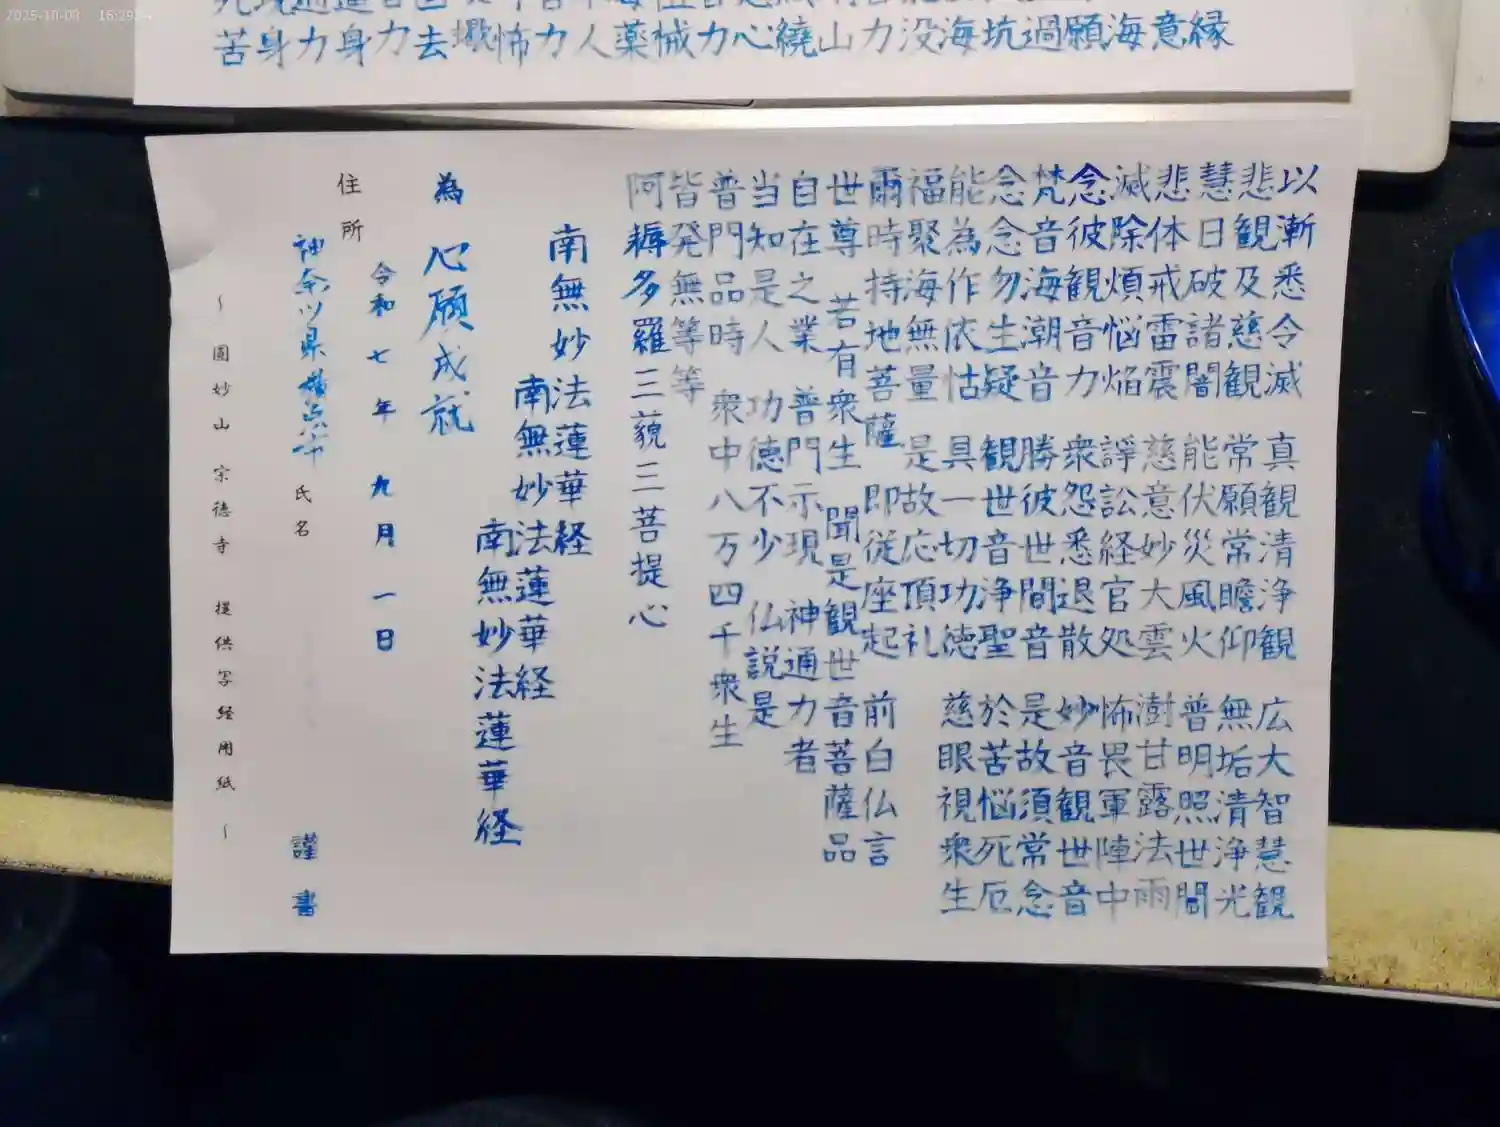 2025-10-09 16:29
苦身力身力去怖力人薬械力心繞山力没海坑過願海意縁
以漸悉令滅 真観清浄観 広大智慧観
悲観及慈観 常願常瞻仰 無垢清浄光
慧日破諸闇 能伏災風火 普明照世間
悲体戒雷震 慈意妙大雲 澍甘露法雨
滅除煩悩焔 諍訟経官処 怖畏軍陣中
念彼観音力 衆怨悉退散 妙音観世音
梵音海潮音 勝彼世間音 是故須常念
念念勿生疑 観世音浄聖 於苦悩死厄
能為作依怙 具一切功徳 慈眼視衆生
福聚海無量 是故応頂礼
爾時持地菩薩 即従座起 前白仏言
世尊 若有衆生 聞是観世音菩薩品
自在之業 普門示現 神通力者
当知是人 功徳不少 仏説是
普門品時 衆中八万四千衆生
皆発無等等
阿耨多羅三藐三菩提心
南無妙法蓮華経
南無妙法蓮華経
南無妙法蓮華経
為 心願成就
令和七年 九月一日
住所
神奈川県横浜市 氏名 謹書
〜圓妙山 宗徳寺 提供写経用紙〜